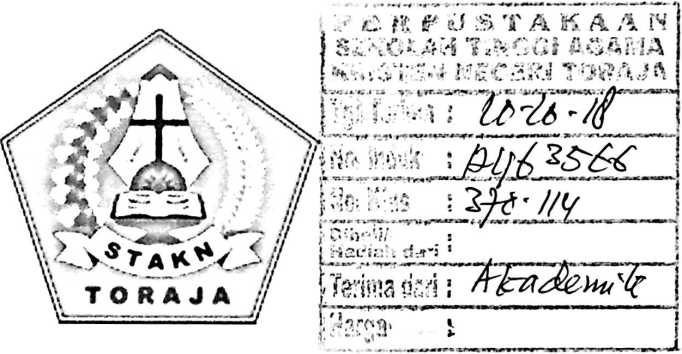 STAKN
TORAJA
PERPUSTAKAAN
SEKOLAH TINGGI AGAMA
KRISTEN NEGERI TORAJA
:
No. Induk :
No. Klas : 378.114
Dibeli/
Hadiah dari :
Terima dari : Akademik
Harga :